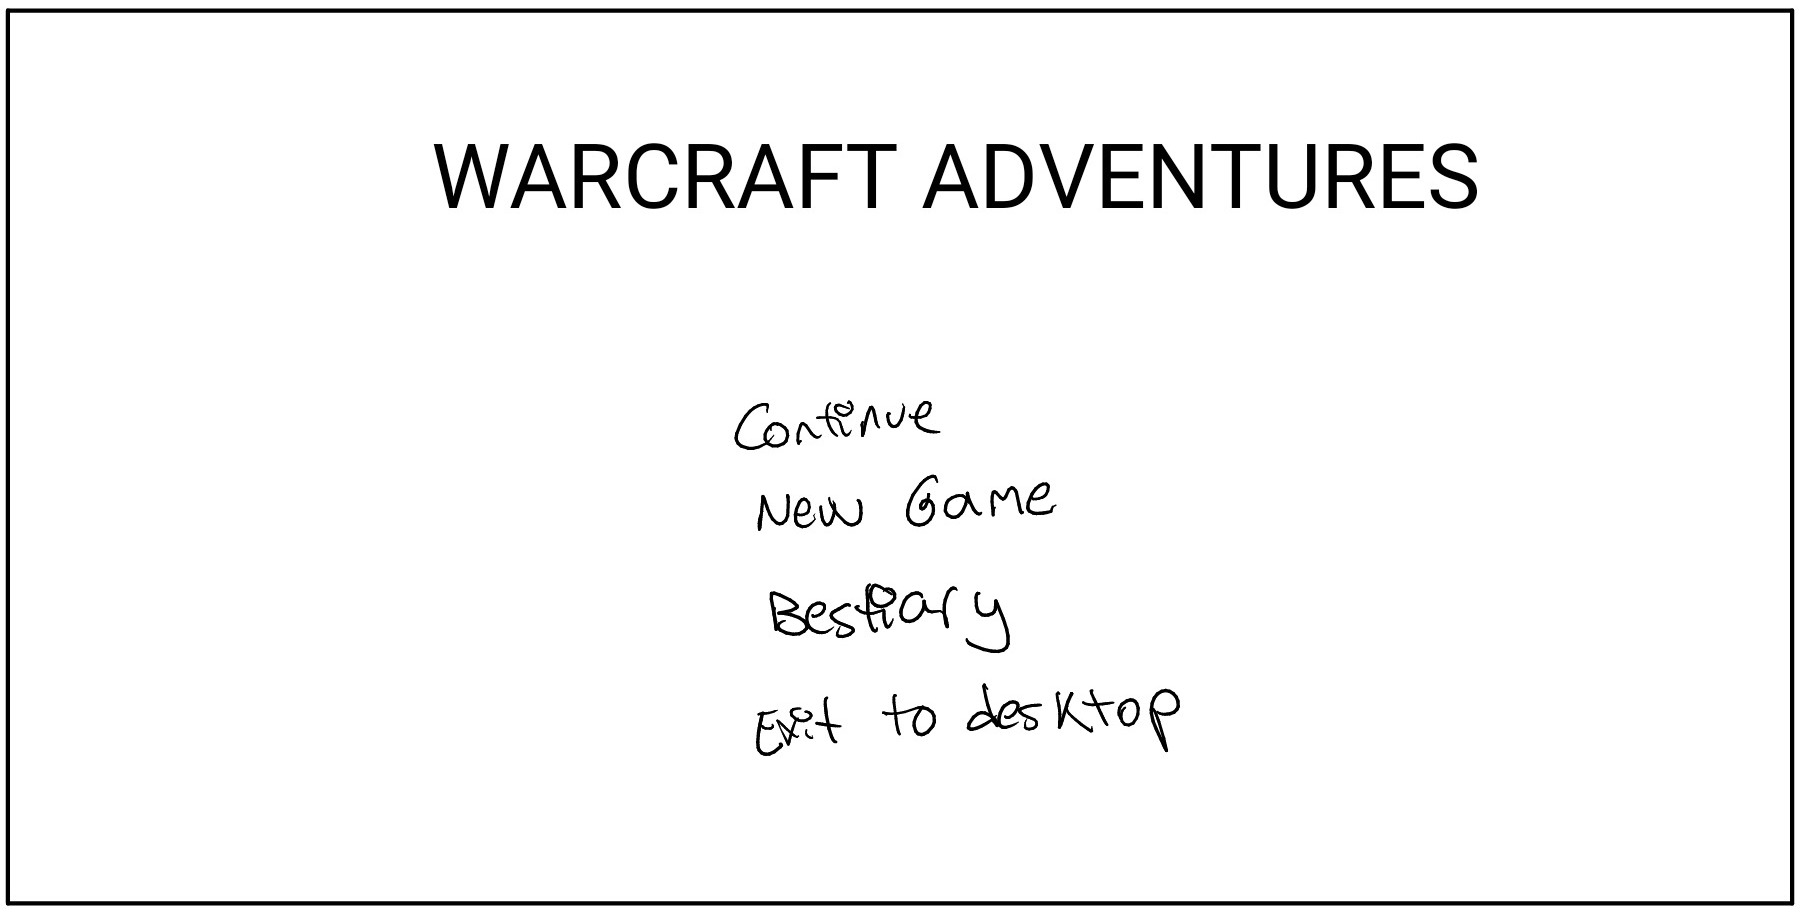 WARCRAFT ADVENTURES
Continue
New Game
Bestiary
Exit to desktop